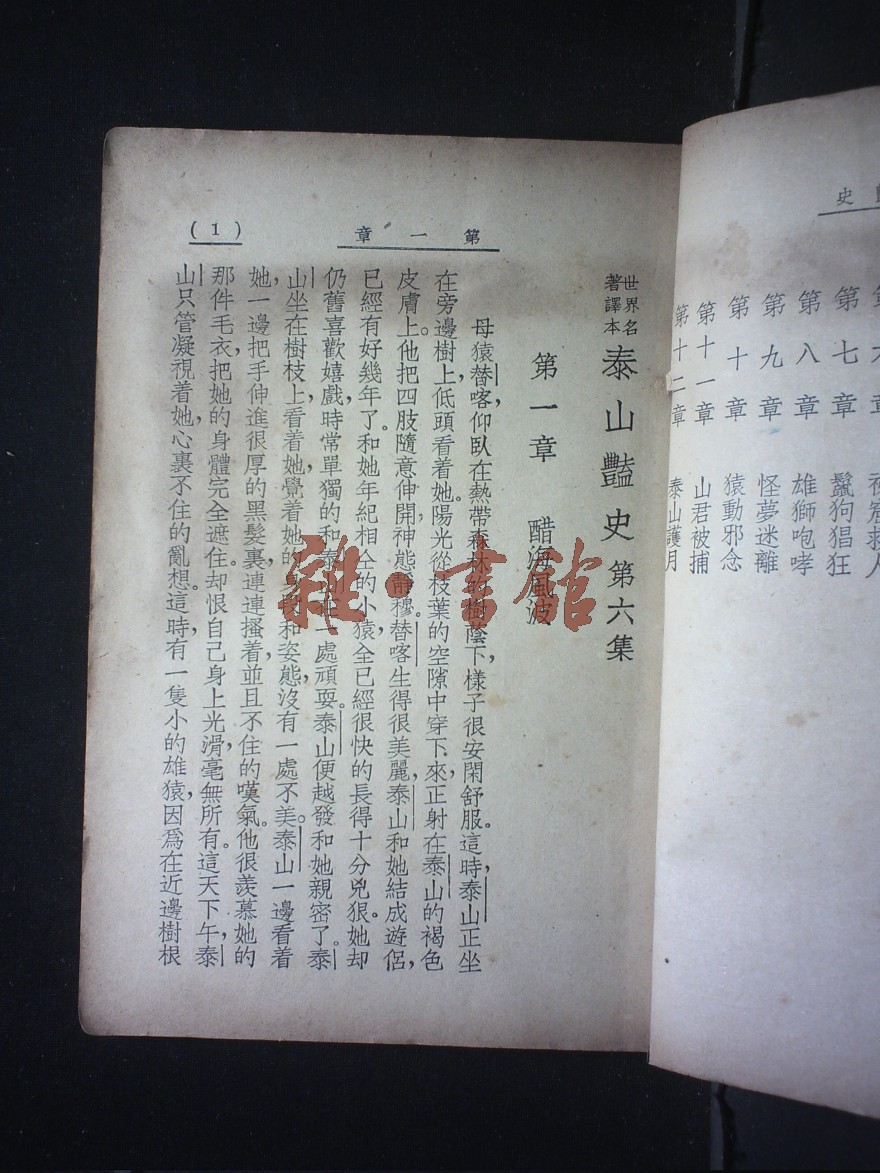 史
第七章 鬣狗猖狂
第八章 雄獅咆哮
第九章 怪夢迷離
第十章 猿動邪念
第十一章 山君被捕
第十二章 泰山護月
第一章
(1)
世界名著譯本 泰山豔史 第六集
第一章 醋海風波
母猿替喀,仰臥在熱帶森林的樹蔭下,樣子很安閑舒服。這時,泰山正坐
在旁邊樹上,低頭看着她。陽光從枝葉的空隙中穿下來,正射在泰山的褐色
皮膚上。他把四肢隨意伸開,神態靜穆。替喀生得很美麗,泰山和她結成遊侶,
已經有好幾年了。和她年紀相仝的小猿,全已經很快的長得十分兇狠。她却
仍舊喜歡嬉戲,時常單獨的和泰山在一處頑耍。泰山便越發和她親密了。泰
山坐在樹枝上,看着她,覺着她的身段和姿態,沒有一處不美。泰山一邊看着
她,一邊把手伸進很厚的黑髮裏,連連搔着,並且不住的嘆氣。他很羨慕她的
那件毛衣,把她的身體完全遮住。却恨自己身上光滑,毫無所有。這天下午,泰
山只管凝視着她,心裏不住的亂想。這時,有一隻小的雄猿,因爲在近邊樹根
雜·書館